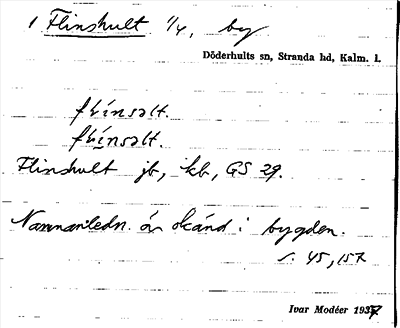 1 Flinshult 1/4, by
Döderhults sn, Stranda hd, Kalm. l.
flinsəlt.
flinsəlt.
Flinshult jb, kb, GS 29.
Namnanledn. är okänd i bygden.
s. 45, 157
Ivar Modéer 1937